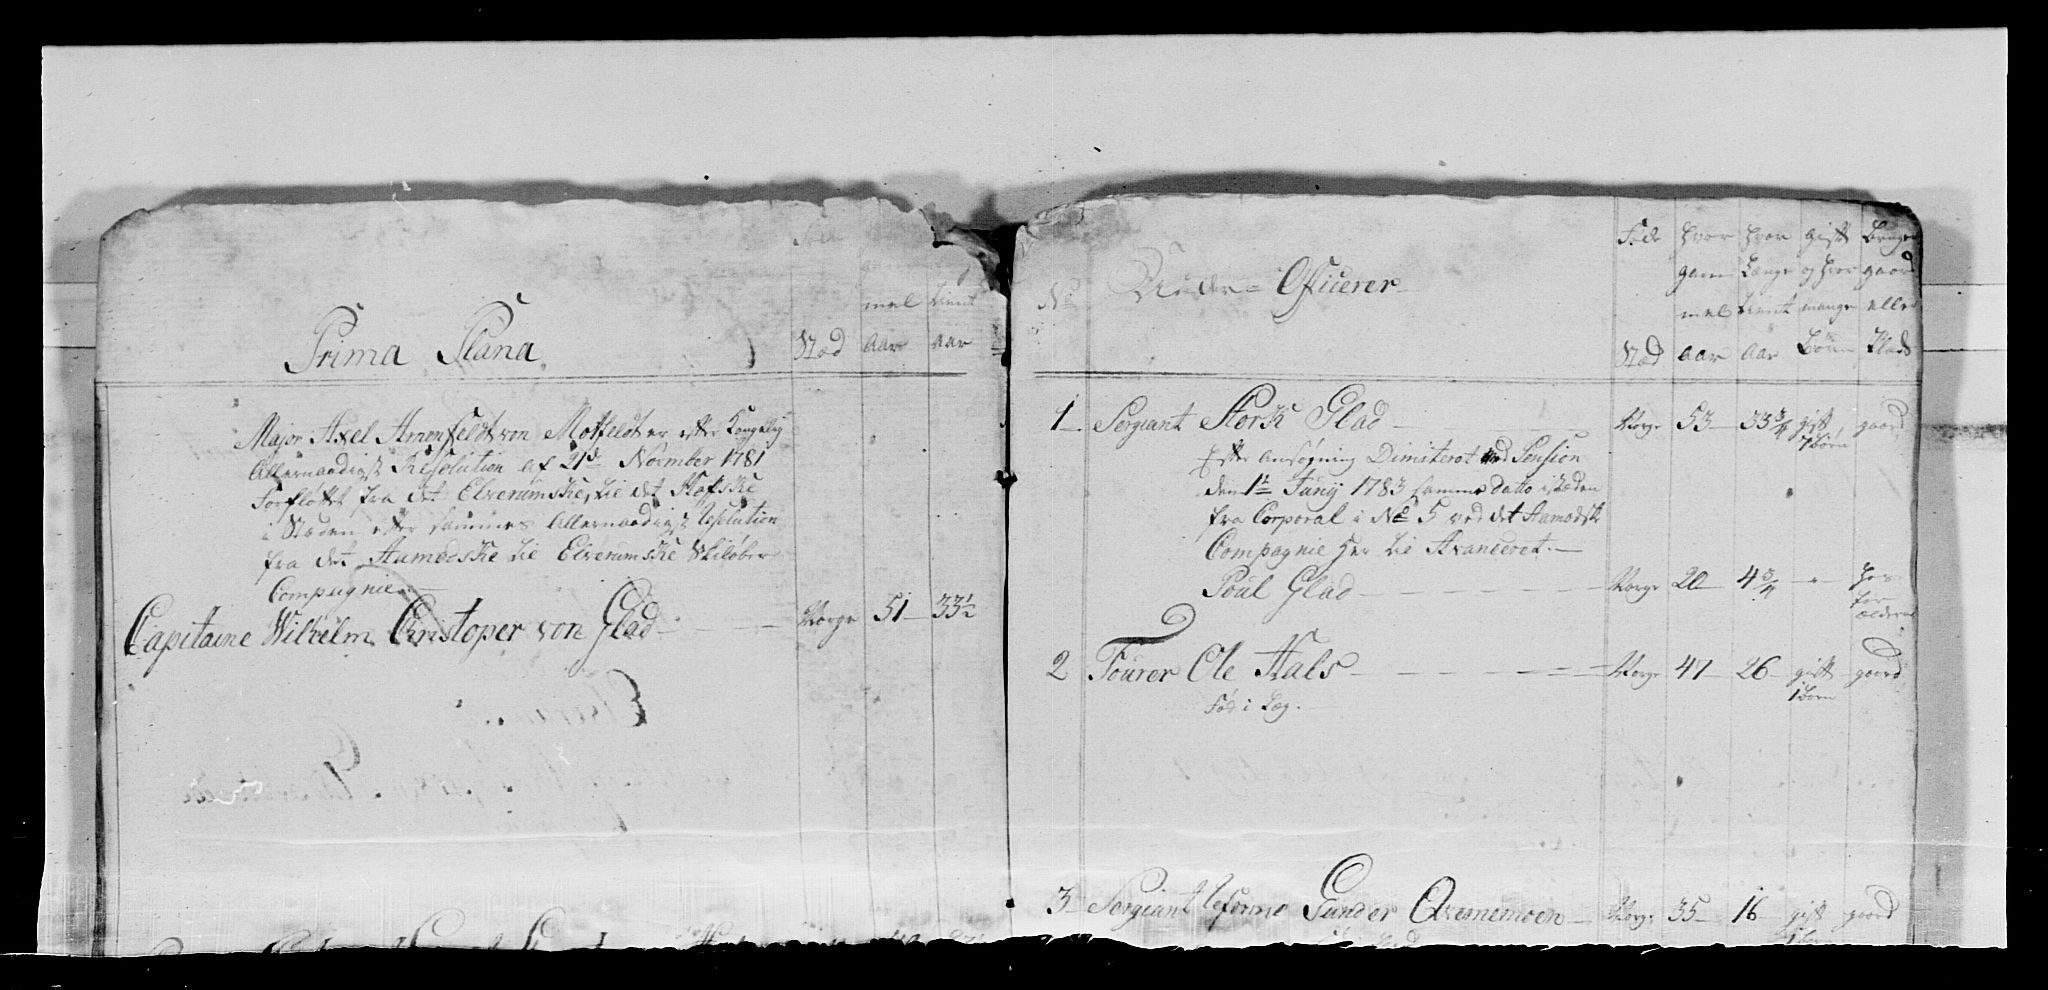 Prima Plana.
Føde Stæd
mel Aar
tient Aar
Major Axel Arnenfeldt von Motfeldt er efter Kongelig
Allernaadigst Resolution af 21de November 1781
Forfløttet fra det Elverumske, til det
i Stæden efter sammes Allernaadigst Resolution
fra det Aamodske til Elverumske Skiløber
Compagnie.
Capitaine Wilhelm Christoper von Glad Norge 51 33½
No
Under-Officerer
Føde Stæd
Hvor gam mel Aar
Hvor Længe tient Aar
Gift og Hvor mange Børn
Bruger gaard eller Plads
1 Sergiant Stork Glad Norge 53 33¾ gift 7 børn gaard
Efter Ansøgning Dimiteret med Pension
den 1te Junij 1783 samme Datto istæden
fra Corporal i No 5 ved det Aamodske
Compagnie her til Avanceret.
Poul Glad Norge 20 4¾ " Hos forældrene
2 Fourer Ole Hals Norge 47 26 gift 1 Barn gaard
Fød i Læg.
3 Sergiant Reforme Gunder Grønemoen Norge 35 16 gift gaard